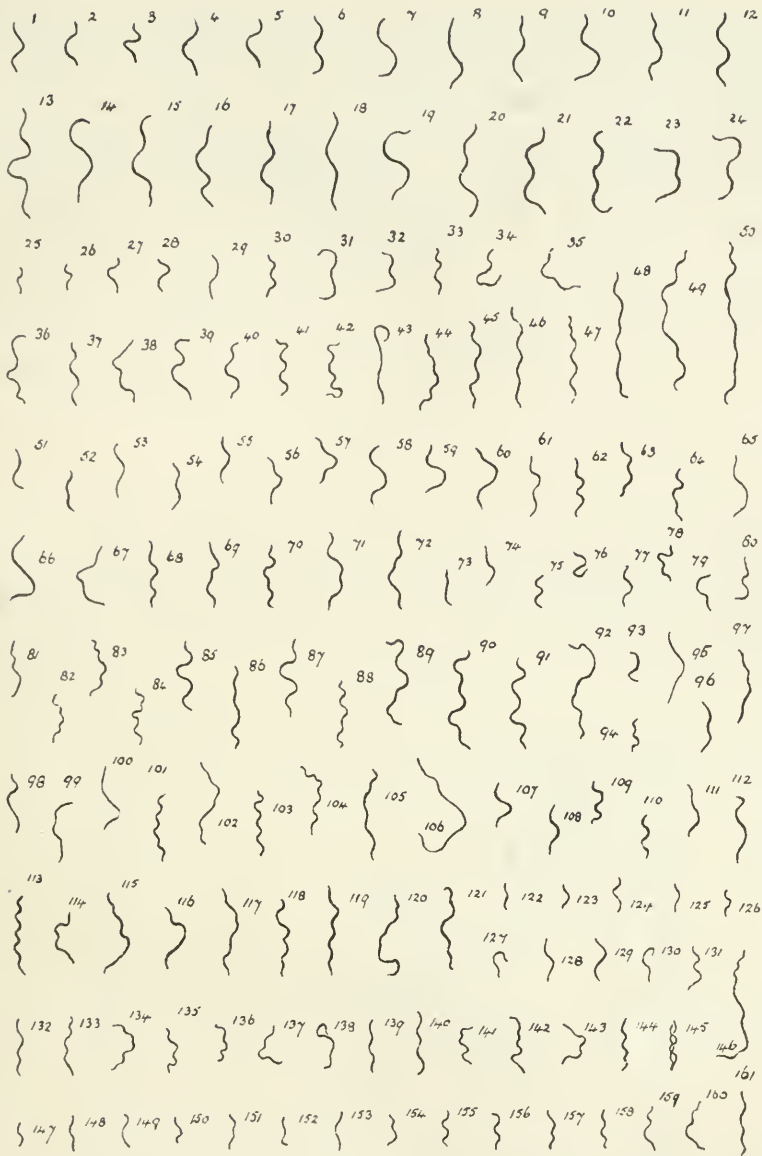 1 2 3 4 5 6 7 8 9 10 11 12
13 14 15 16 17 18 19 20 21 22 23 24
25 26 27 28 29 30 31 32 33 34 35 48 49 50
36 37 38 39 40 41 42 43 44 45 46 47
51 52 53 54 55 56 57 58 59 60 61 62 63 64 65
66 67 68 69 70 71 72 73 74 75 76 77 78 79 80
81 82 83 84 85 86 87 88 89 90 91 92 93 94 95 96 97
98 99 100 101 102 103 104 105 106 107 108 109 110 111 112
113 114 115 116 117 118 119 120 121 122 123 124 125 126
127 128 129 130 131
132 133 134 135 136 137 138 139 140 141 142 143 144 145 146
147 148 149 150 151 152 153 154 155 156 157 158 159 160 161